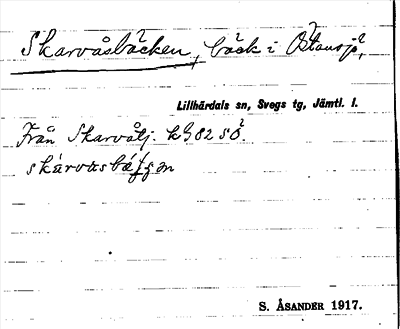 Skarvåsbäcken, bäck i Östansjö,
Lillhärdals sn, Svegs tg, Jämtl. l.
Från Skarvåtj. kz 82 sö.
S. ÅSANDER 1917.